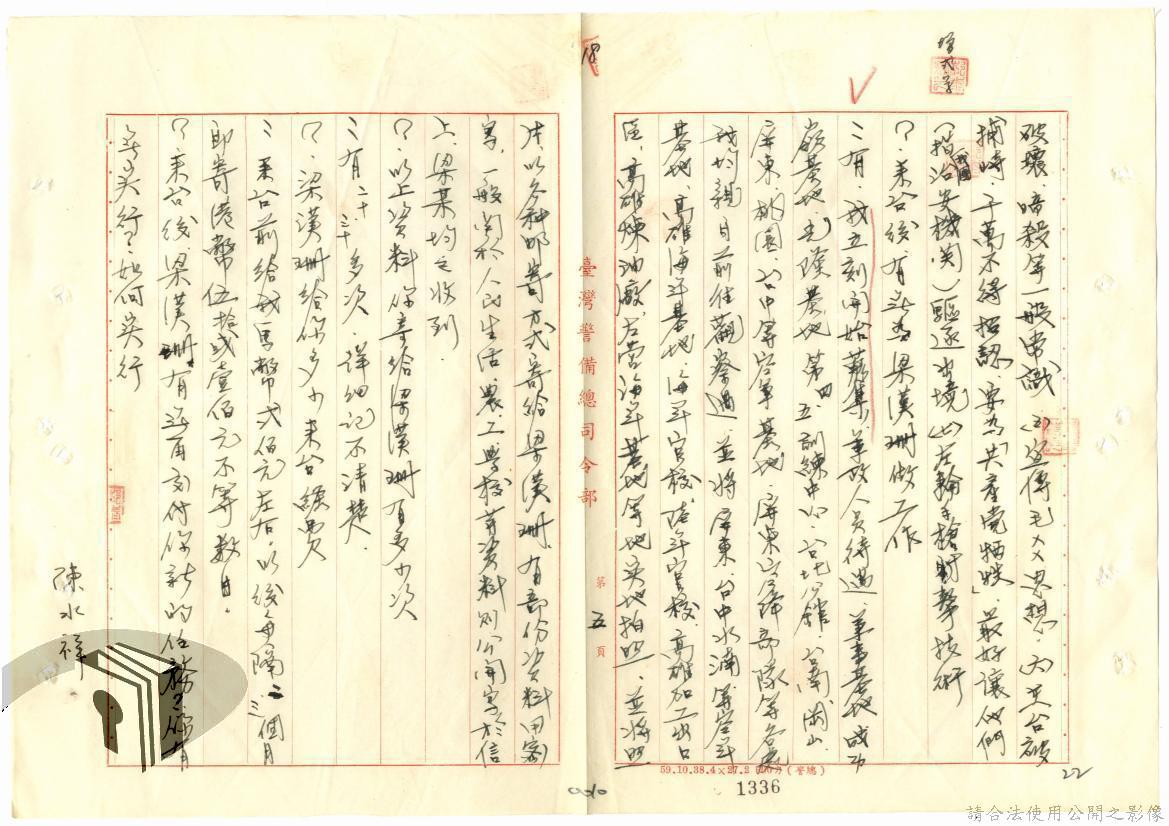 破壞、暗殺等一般常識。宣傳毛××思想、
捕時，千萬不得招認，要為「共產党犧牲」，最好讓他們
（指我國治安機関）驅逐出境。左輪手槍射擊技術
？來台後有無為梁漢珊做工作
：有。我立刻開始蒐集軍政人員待遇、軍事基地成功
嶺基地、第四、五訓練中心、公館、台南岡山、
屏東、桃園、台中等空軍基地、屏東空降部隊等各處
我均親自前往觀察過，並將屏東台中水湳等空軍
基地、高雄海軍基地、海军官校、陸軍官校、高雄加工出口
區、高雄煉油廠、左營海軍基地等地实地拍照，並將照
片以各种邮寄方式寄給梁漢珊。有部份資料用密
寫，一般関於人民生活、農工學校等資料則公開寫於信
上，梁某均已收到
？以上資料你寄給梁漢珊有多少次
：有二十、三十多次，詳細記不清楚。
？梁漢珊給你多少來台經費
：來台前給我馬幣弍佰元左右，以後每隔二、三個月
即寄港幣伍拾或壹佰元不等數目。
？來台後，梁漢珊有無再交付你新的任務？你有
無实行，如何实行
陳水祥
臺灣警備總司令部
第五頁
59.10.38.4×27.2（警總）
1336
22
請合法使用公開之影像